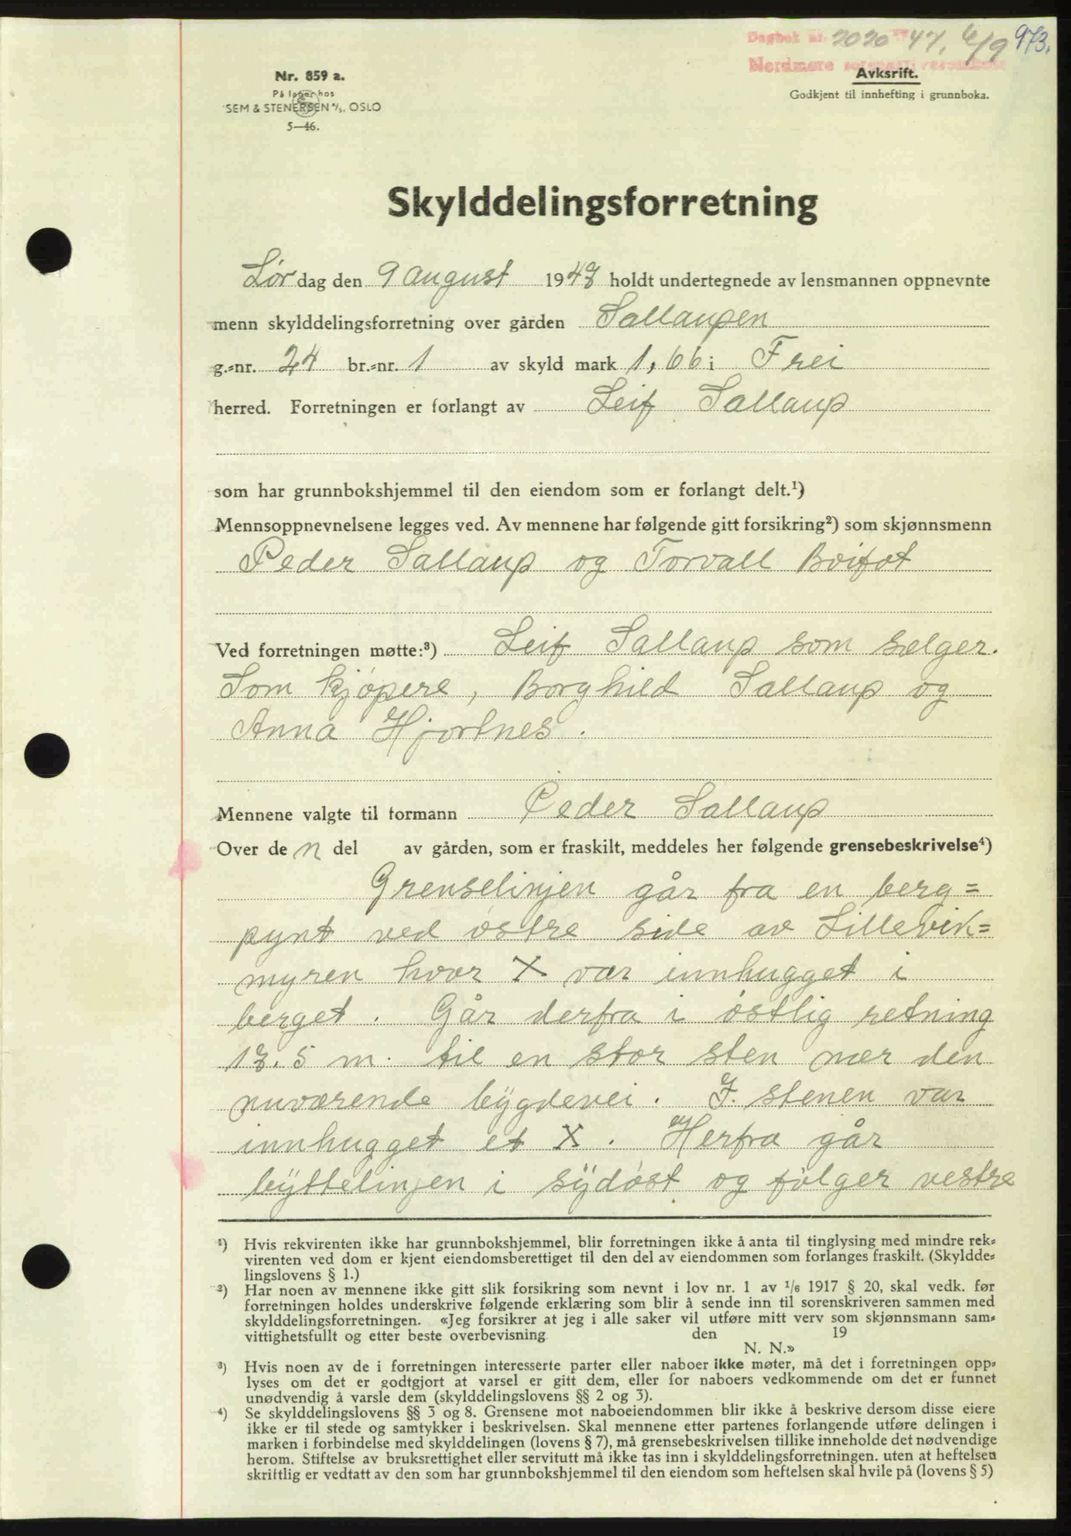 Dagbok nr. 2020 47, 6/9 973.
Nordmøre sorenskriverembete
Nr. 859 a.
På lager hos
SEM & STENERSEN A/S, OSLO
5—46.
Avkskrift.
Godkjent til innhefting i grunnboka.
Skylddelingsforretning
Lørdag den 9 august 1947 holdt undertegnede av lensmannen oppnevnte
menn skylddelingsforretning over gården Sallaupen
g.-nr. 24 br.-nr. 1 av skyld mark 1,66 i Frei
herred. Forretningen er forlangt av Leif Sallaup
som har grunnbokshjemmel til den eiendom som er forlangt delt.¹)
Mennsoppnevnelsene legges ved. Av mennene har følgende gitt forsikring²) som skjønnsmenn
Peder Sallaup og Torvall Boifot
Ved forretningen møtte:³) Leif Sallaup som sælger.
Som kjøpere, Borghild Sallaup og
Anna Hjortnes.
Mennene valgte til formann Peder Sallaup
Over de n del av gården, som er fraskilt, meddeles her følgende grensebeskrivelse⁴)
Grenselinjen går fra en berg=
pynt ved østre side av Lillevik=
myren hvor X var innhugget i
berget. Går derfra i østlig retning
17.5 m. til en stor sten nær den
nuværende bygdevei. I. stenen var
innhugget et X. Herfra går
byttelinjen i sydøst og følger vestre
¹) Hvis rekvirenten ikke har grunnbokshjemmel, blir forretningen ikke å anta til tinglysing med mindre rek-
virenten ved dom er kjent eiendomsberettiget til den del av eiendommen som forlanges fraskilt. (Skyldde-
lingslovens § 1.)
²) Har noen av mennene ikke gitt slik forsikring som nevnt i lov nr. 1 av 1/6 1917 § 20, skal vedk. før
forretningen holdes underskrive følgende erklæring som blir å sende inn til sorenskriveren sammen med
skylddelingsforretningen. «Jeg forsikrer at jeg i alle saker vil utføre mitt verv som skjønnsmann sam-
vittighetsfullt og etter beste overbevisning den 19
N. N.»
³) Hvis noen av de i forretningen interesserte parter eller naboer ikke møter, må det i forretningen opp-
lyses om det er godtgjort at varsel er gitt dem, eller for naboers vedkommende om det er funnet
unødvendig å varsle dem (skylddelingslovens §§ 2 og 3).
⁴) Se skylddelingslovens §§ 3 og 8. Grensene mot naboeiendommen blir ikke å beskrive dersom disse eiere
ikke er til stede og samtykker i beskrivelsen. Skal mennene etter partenes forlangende utføre delingen i
marken i forbindelse med skylddelingen (lovens § 7), må grensebeskrivelsen tillike inneholde det nødvendige
herom. Stiftelse av bruksrettighet eller servitutt må ikke tas inn i skylddelingsforretningen. uten at heftelsen
skriftlig er vedtatt av den som har grunnbokshjemmel til den eiendom som heftelsen skal hvile på (lovens § 5)